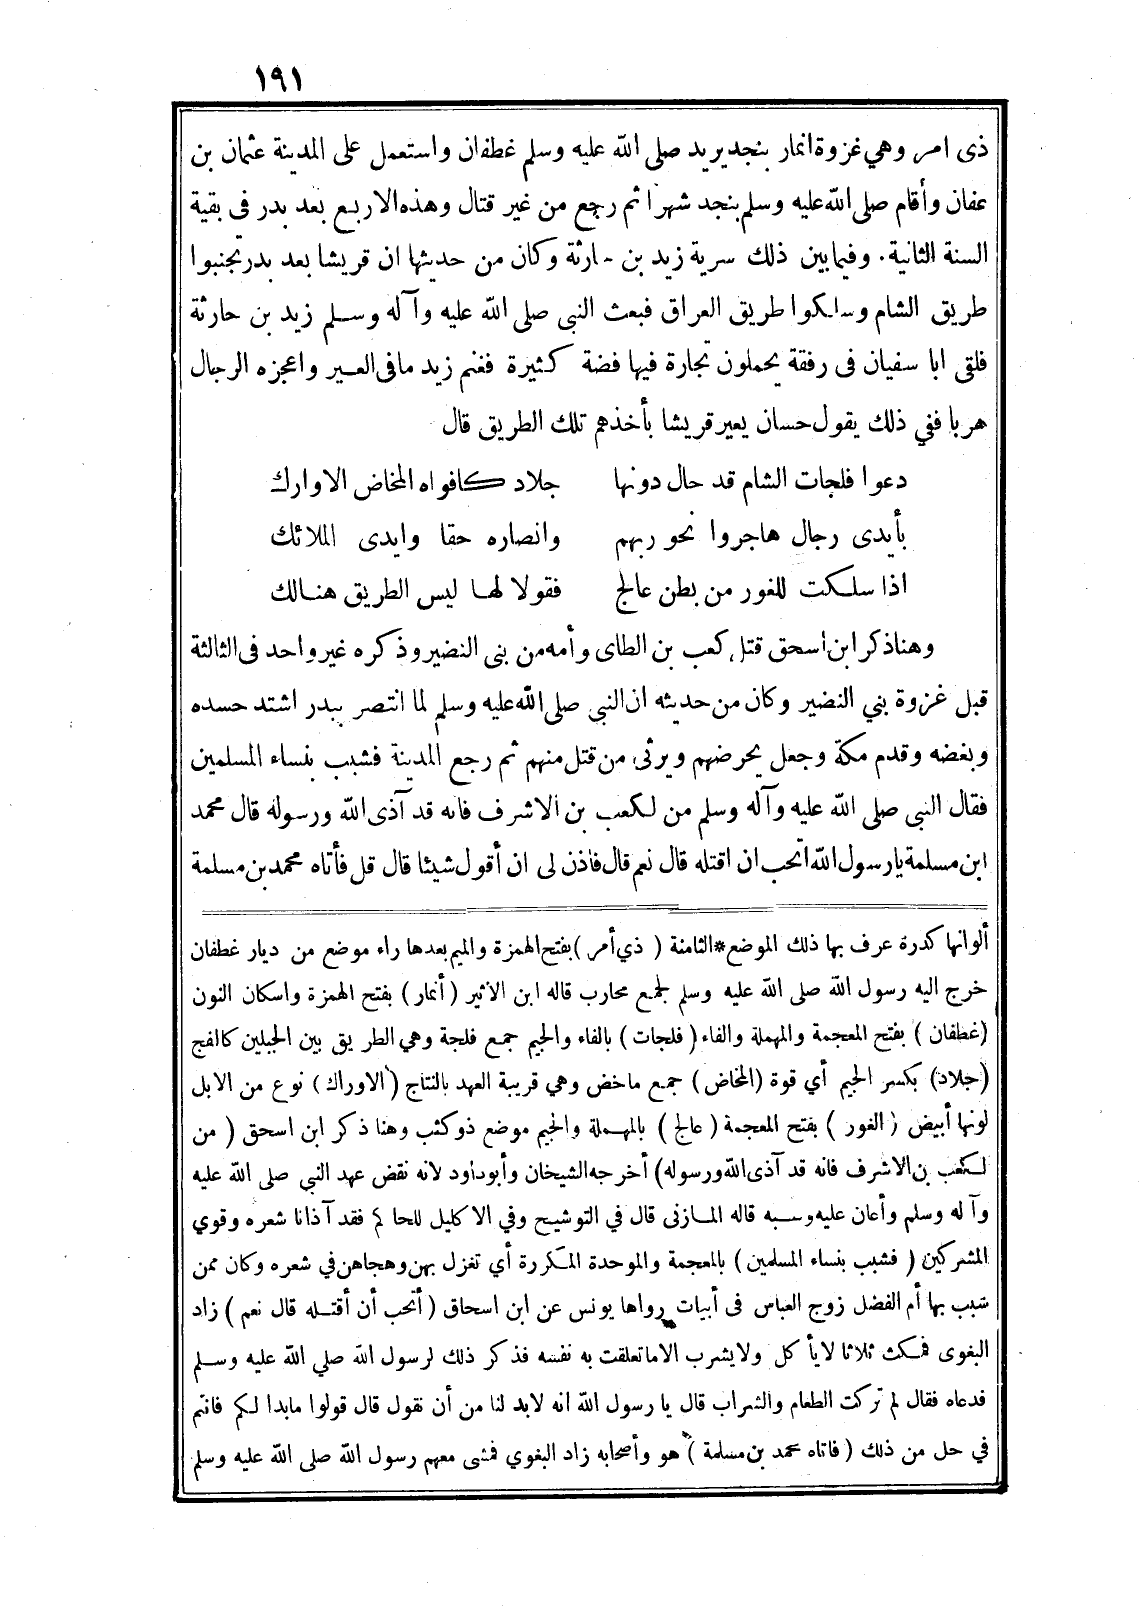 ١٩١
ذى امر وهي غزوة انمار بنجد يريد صلى الله عليه وسلم غطفان واستعمل على المدينة عثمان بن
عفان وأقام صلى الله عليه وسلم بنجد شهرا ثم رجع من غير قتال وهذه الاربع بعد بدر فى بقية
السنة الثانية. وفيما بين ذلك سرية زيد بن حارثة وكان من حديثها ان قريشا بعد بدر تجنبوا
طريق الشام وسلكوا طريق العراق فبعث النبي صلى الله عليه وآله وسلم زيد بن حارثة
فلقى ابا سفيان فى رفقة يحملون تجارة فيها فضة كثيرة فغنم زيد مافى العير واعجزه الرجال
هربا ففي ذلك يقول حسان يعير قريشا بأخذهم تلك الطريق قال
دعوا فلجات الشام قد حال دونها جلاد كافواه المخاض الاوارك
بأيدى رجال هاجروا نحو ربهم وانصاره حقا وايدى الملائك
اذا سلكت للغور من بطن عالج فقولا لها ليس الطريق هنالك
وهنا ذكر ابن اسحق قتل كعب بن الطاى وأمه من بنى النضير وذكره غير واحد فى الثالثة
قبل غزوة بني النضير وكان من حديثه ان النبي صلى الله عليه وسلم لما انتصر ببدر اشتد حسده
وبغضه وقدم مكة وجعل يحرضهم ويرثى من قتل منهم ثم رجع المدينة فشبب بنساء المسلمين
فقال النبي صلى الله عليه وآله وسلم من لكعب بن الاشرف فانه قد آذى الله ورسوله قال محمد
ابن مسلمة يارسول الله اتحب ان اقتله قال نعم قال فاذن لى ان أقول شيئا قال قل فأتاه محمد بن مسلمة
ألوانها كدرة عرف بها ذلك الموضع*الثامنة ( ذي أمر ) بفتح الهمزة والميم بعدها راء موضع من ديار غطفان
خرج اليه رسول الله صلى الله عليه وسلم لجمع محارب قاله ابن الأثير (أنمار) بفتح الهمزة واسكان النون
(غطفان ) بفتح المعجمة والمهملة والفاء (فلجات) بالفاء والجيم جمع فلجة وهي الطريق بين الجبلين كالفج
(جلاد) بكسر الجيم أي قوة (المخاض) جمع ماخض وهي قريبة العهد بالنتاج (الاوراك) نوع من الابل
لونها أبيض (الغور ) بفتح المعجمة (عالج ) بالمهملة والجيم موضع ذو كثب وهنا ذكر ابن اسحق ( من
لكعب بن الاشرف فانه قد آذى الله ورسوله) أخرجه الشيخان وأبو داود لانه نقض عهد النبي صلى الله عليه
وآله وسلم وأعان عليه وسبه قاله المازنى قال في التوشيح وفي الاكليل للحاكم فقد آذانا شعره وقوي
المشركين ( فشبب بنساء المسلمين ) بالمعجمة والموحدة المكررة أي تغزل بهن وهجاهن في شعره وكان ممن
شبب بها أم الفضل زوج العباس فى أبيات رواها يونس عن ابن اسحاق (أتحب أن أقتله قال نعم ) زاد
البغوى فمكث ثلاثا لا يأكل ولا يشرب الا ماتعلقت به نفسه فذكر ذلك لرسول الله صلي الله عليه وسلم
فدعاه فقال لم تركت الطعام والشراب قال يا رسول الله انه لابد لنا من أن نقول قال قولوا مابدا لكم فانتم
في حل من ذلك (فاتاه محمد بن مسلمة ) هو وأصحابه زاد البغوي فمشى معهم رسول الله صلى الله عليه وسلم